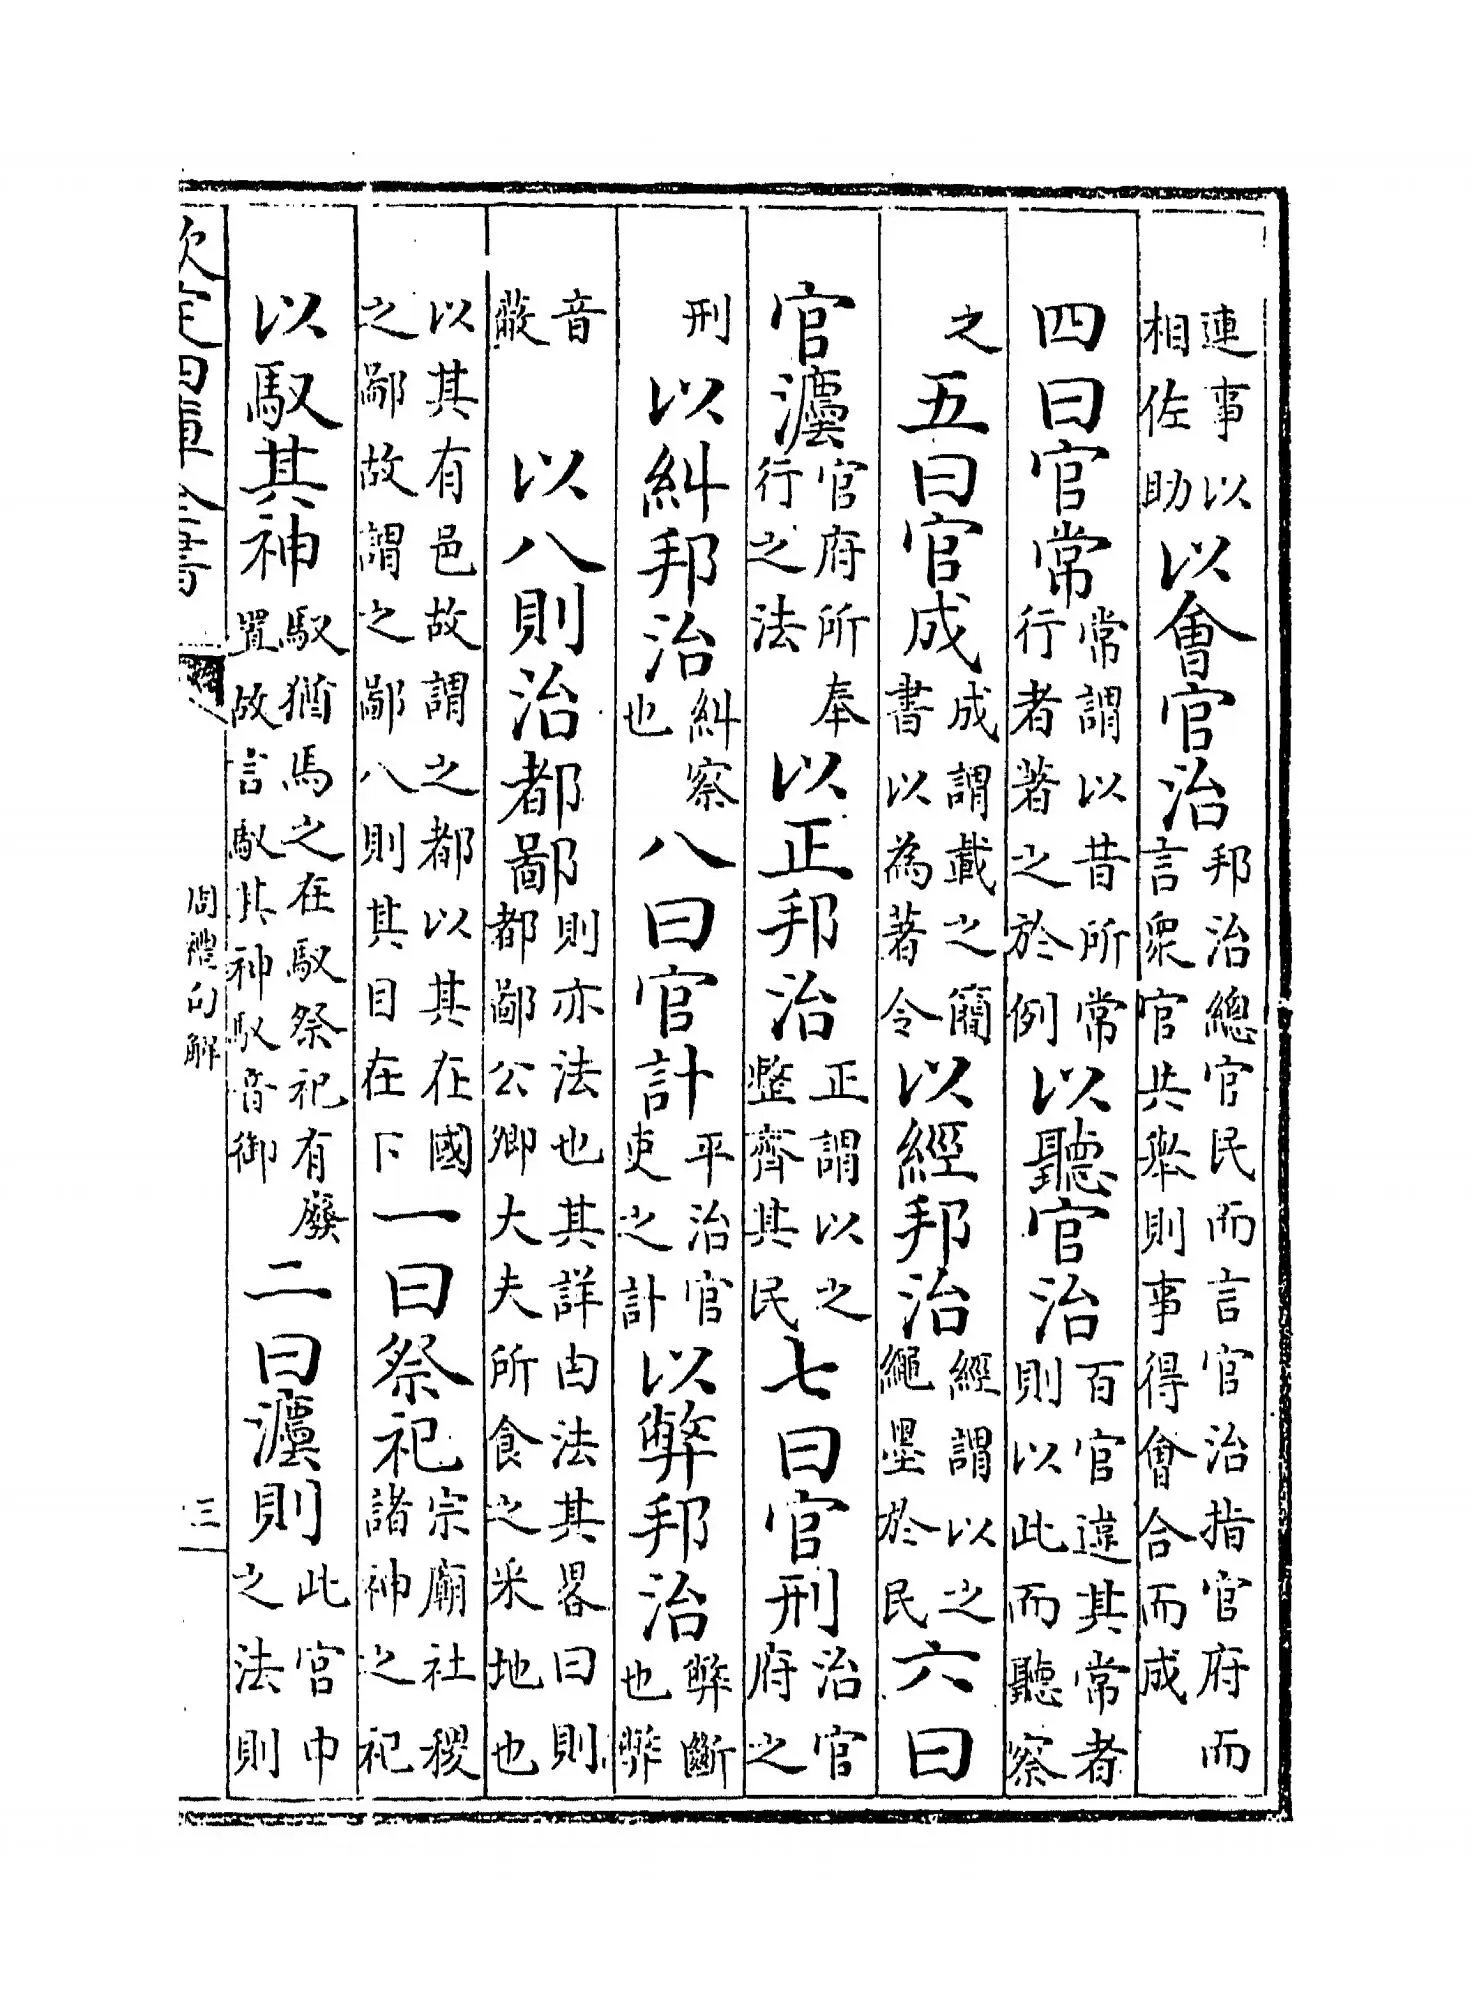 連事以相佐助以會官治邦治總官民而言官治指官府而言衆官共舉則事得會合而成
四曰官常常謂以昔所常行者著之於例以聽官治百官違其常者則以此而聽察
之五曰官成成謂載之簡書以為著令以經邦治經謂以之繩墨於民六曰
官灋官府所奉行之法以正邦治正謂以之整齊其民七曰官刑治官府之
刑以糾邦治糾察也八曰官計平治官吏之計以弊邦治弊斷也弊
音蔽以八則治都鄙則亦法也其詳由法其畧曰則都鄙公卿大夫所食之采地也
以其有邑故謂之都以其在國之鄙故謂之鄙八則其目在下一曰祭祀宗廟社稷諸神之祀
以馭其神馭猶馬之在馭祭祀有廢置故言馭其神馭音御二曰灋則此官中之法則
欽定四庫全書
周禮句解
三